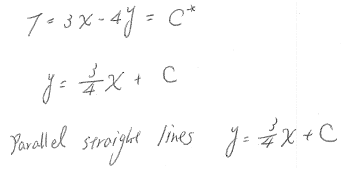 T = 3x - 4y = C*
y = 3/4 x + C
Parallel straight lines y = 3/4 x + C